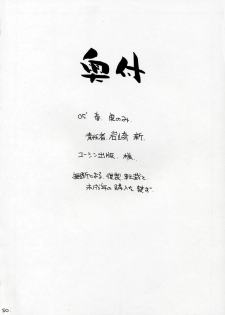 奥付
05' 春 奥のみ
責任者 岩崎 新
コーシン出版 様
無断による 複製 転載と
未成年の購入を禁ず
50